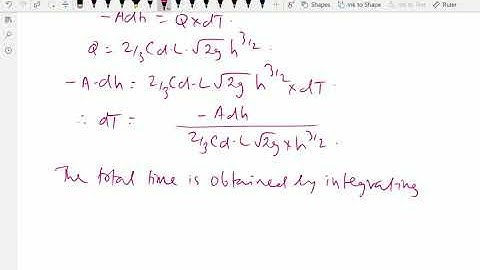 Shapes Ink to Shape Ruler
-Adh = Q×dT.
Q = 2/3 Cd·L·√2g h^3/2.
-A·dh = 2/3 Cd·L √2g h^3/2 × dT.
∴ dT = -Adh / 2/3 Cd·L √2g × h^3/2.
The total time is obtained by integrating